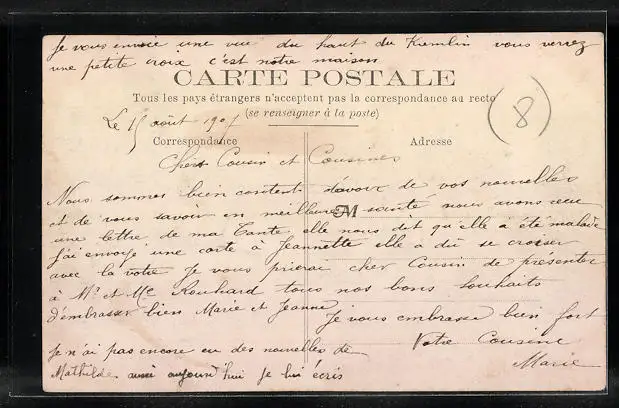 Je vous envoie une vue du haut du Kremlin vous verrez
une petite croix c'est notre maison
CARTE POSTALE
Tous les pays étrangers n'acceptent pas la correspondance au recto
(se renseigner à la poste)
8
Le 15 août 1907
Correspondance
Adresse
Chers Cousin et Cousines
Nous sommes bien content d'avoir de vos nouvelles
et de vous savoir en meilleure santé nous avons reçu
M
une lettre de ma Tante elle nous dit qu'elle a été malade
j'ai envoyé une carte à Jeannette elle a dû se croiser
avec la votre Je vous prierai cher Cousin de présenter
à Mr et Me Rouhard tous nos bons souhaits
d'embrasser bien Marie et Jeanne
Je vous embrasse bien fort
Votre Cousine
Marie
Je n'ai pas encore eu des nouvelles de
Mathilde aussi aujourd'hui je lui écris